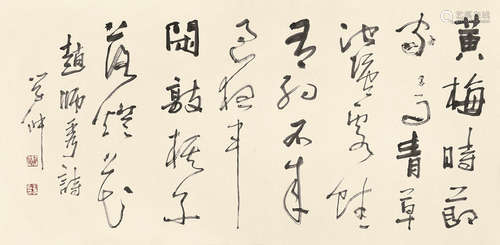 黄梅時節
家家雨青草
池塘處處蛙
有約不来
過夜半
閑敲棋子
落燈花
趙師秀詩